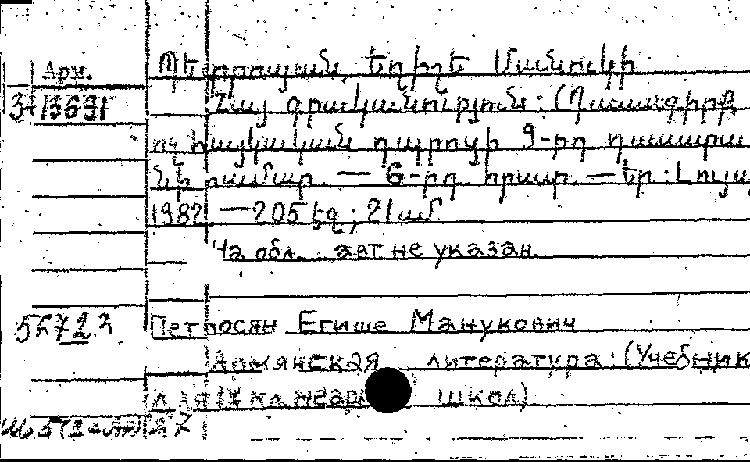 Պետրոսյան, Եղիշե Մանուկի
Арм.
Հայ գրականություն: (Դասագիրք
3413691
ոչ հայկական դպրոցի 9-րդ դասարա
նի համար. — 6-րդ հրատ. — Եր.: Լույս
1982 — 205 էջ; 21 սմ
На обл. : авт не указан.
56722
Петросян Егише Манукович
Армянская литература: (Учебник
для кл. неарм школ)
27